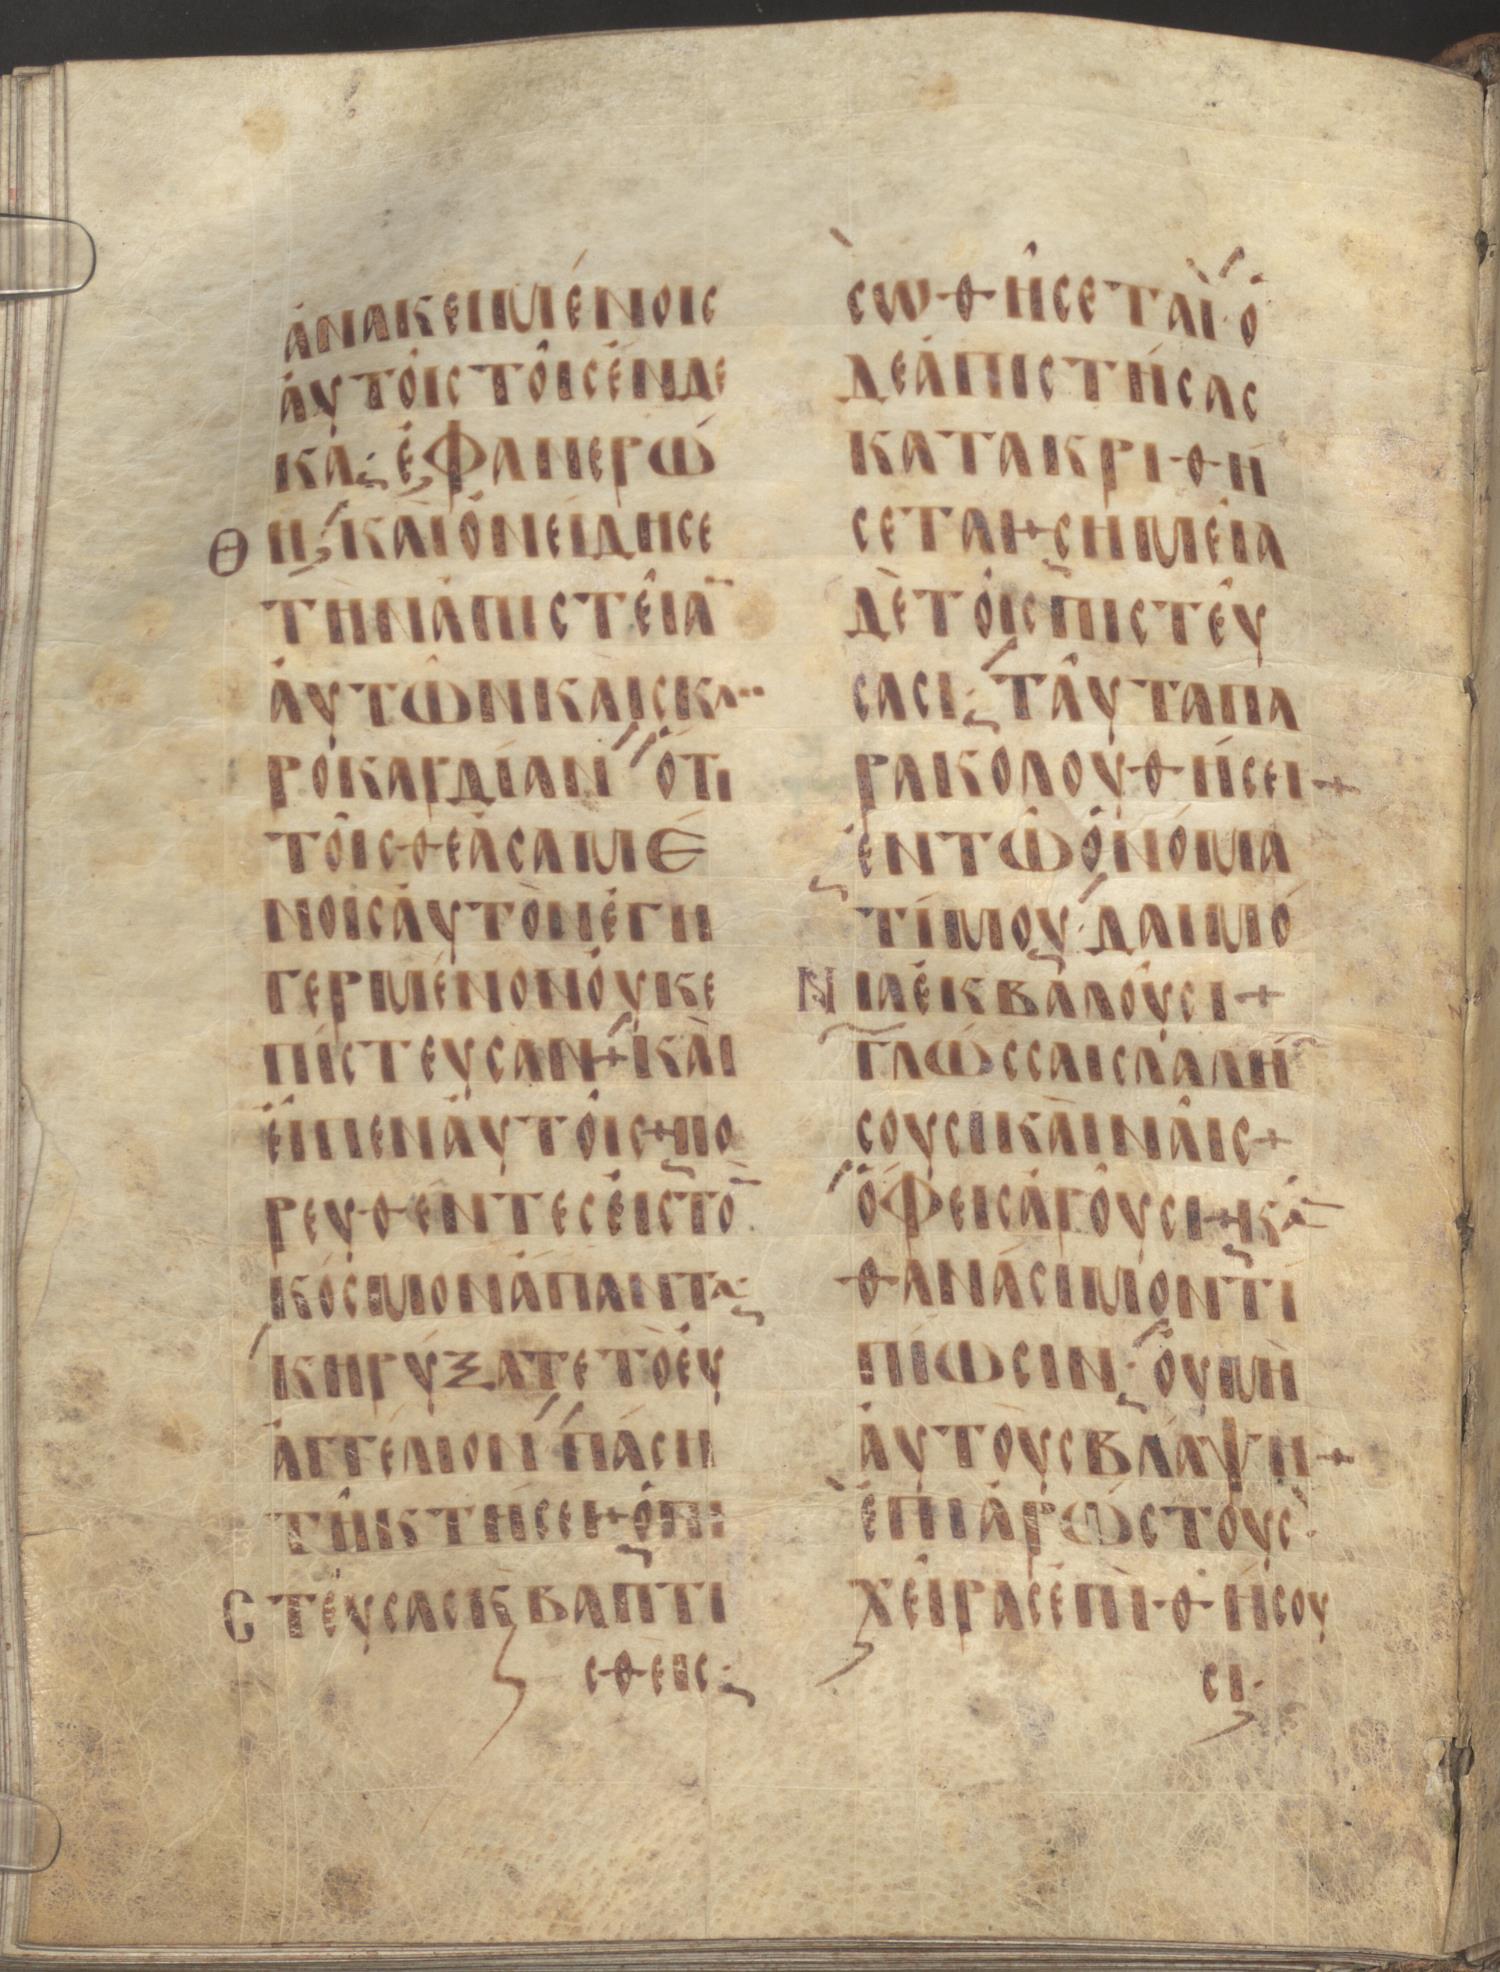 ἀνακειμένοις
ἀυτοῖς τοῖς ἕνδε
κα· ἐφανερώ
Θη· καὶ ὀνείδησε
τὴν ἀπιστεῖα̅
ἀυτῶν καὶ σκλη
ροκαρδίαν ὅτι
τοῖς θεασαμέ
νοις ἀυτὸν ἐγη
γερμένον ὀυκ ἐ
πίστευσαν + καὶ
εἶπεν ἀυτοῖς + πο
ρευθέντες εἰς τὸ̅
κόσμον ἅπαντα·
κηρύξατε τὸ ἐυ
ἀγγέλιον πάση
τῆ κτήσει + ὁ πι
Στέυσας κ βαπτι
σθεὶς·
σωθήσεται· ὁ
δὲ ἀπιστήσας
κατακριθή
σεται + σημεῖα
δὲ τοῖς πιστεύ
σασι· ταῦτα πα
ρακολουθήσει +
ἐν τῶ ὀνόμα
τί μου· δαιμό
Νια ἐκβαλοῦσι +
γλώσσαις λαλή
σουσι καιναῖς +
ὄφεις ἀροῦσι + κἂ̅
θανάσιμον τι
πίωσιν· οὐ μὴ
ἀυτοὺς βλάψη +
ἐπὶ ἀρώστους·
χεῖρας ἐπιθήσου
σι·